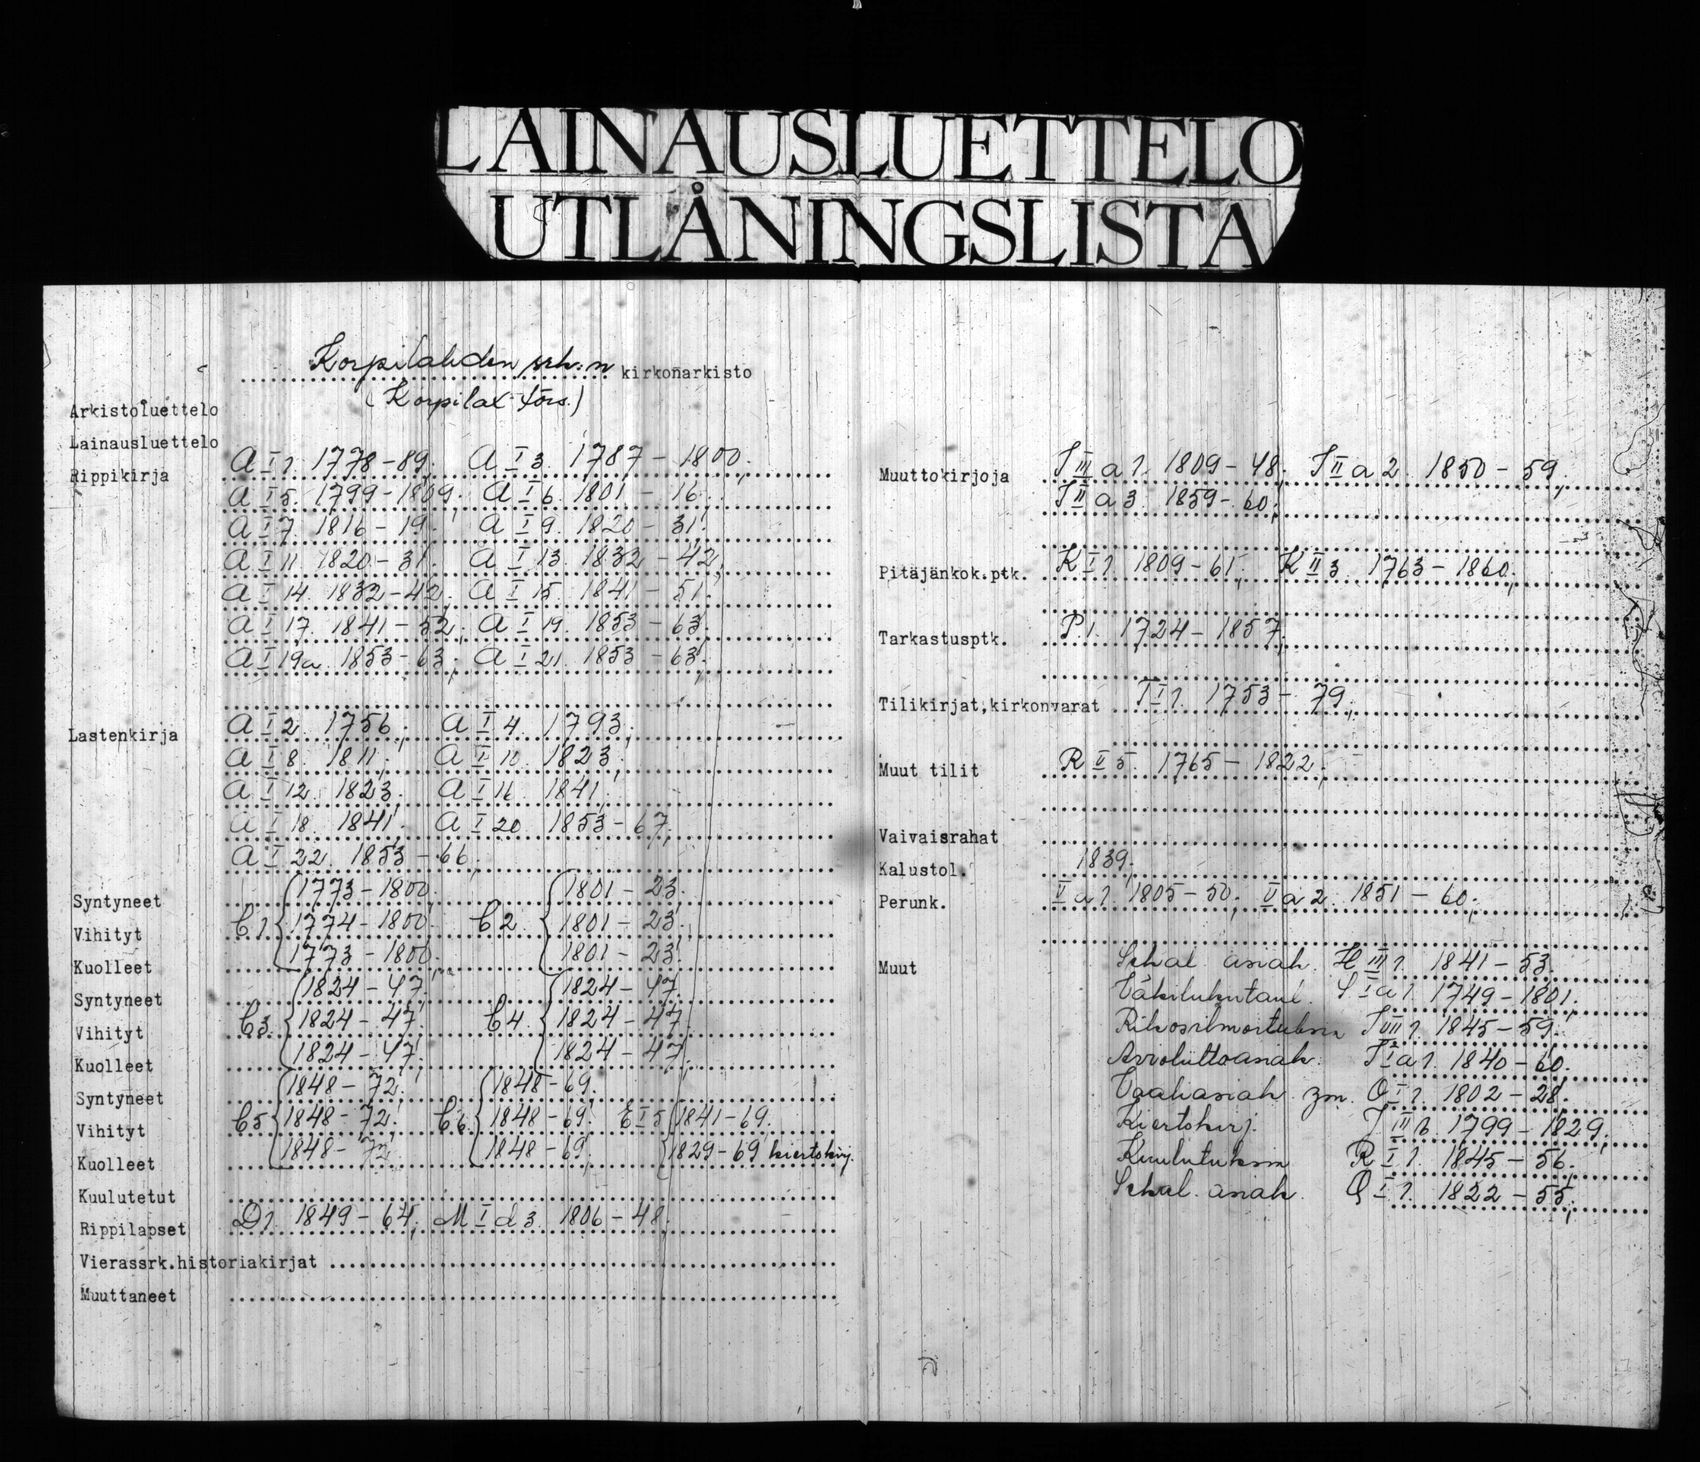 LAINAUSLUETTELO
UTLÅNINGSLISTA
Korpilahden srk:n kirkonarkisto
(Korpilax förs.)
Arkistoluettelo
Lainausluettelo
Rippikirja A I 1. 1778-89. A I 3. 1787-1800,
A I 5. 1799-1809. A I 6. 1801-16.
A I 7. 1816-19. A I 9. 1820-31.
A I 11. 1820-31. A I 13. 1832-42,
A I 14. 1832-42, A I 15. 1841-51.
A I 17. 1841-52, A I 19. 1853-63.
A I 19a. 1853-63, A I 21. 1853-63.
Lastenkirja A I 2. 1756, A I 4. 1793,
A I 8. 1811, A I 10. 1823.
A I 12. 1823. A I 16. 1841,
A I 18. 1841. A I 20. 1853-67,
A I 22. 1853-66,
Syntyneet 1773-1800. 1801-23.
Vihityt C 1 1774-1800. C 2. 1801-23,
Kuolleet 1773-1800. 1801-23.
Syntyneet 1824-47. 1824-47.
Vihityt C 3. 1824-47. C 4. 1824-47.
Kuolleet 1824-47. 1824-47.
Syntyneet 1848-72. 1848-69.
Vihityt C 5 1848-72. C 6. 1848-69. E I 5 1841-69.
Kuolleet 1848-72. 1848-69. 1829-69 kiertokirj.
Kuulutetut
Rippilapset D 1. 1849-64, M I d 3. 1806-48.
Vierassrk.historiakirjat
Muuttaneet
Muuttokirjoja III a 1. 1809-48, II a 2. 1850-59,
II a 3. 1859-60,
Pitäjänkok.ptk. K I 1. 1809-61, K II 3. 1763-1860,
Tarkastusptk. P. 1. 1724-1857,
Tilikirjat,kirkonvarat T I 1. 1753-79,
Muut tilit R II 5. 1765-1822,
Vaivaisrahat
Kalustol. 1839,
Perunk. II a 1. 1805-50, II a 2. 1851-60,
Muut Sekal. asiak. H III 1. 1841-53.
Väkilukutaul. I a 1. 1749-1801,
Rikosilmoituksia VII 1. 1845-59.
Avioliittoasiak. I a 1. 1840-60.
Vaahasiak. ym. O I 1. 1802-28.
Kiertokirj. III 1799-1829,
Kuulutuksia R I 1. 1845-56.
Sekal. asiak. Q I 1. 1822-55,